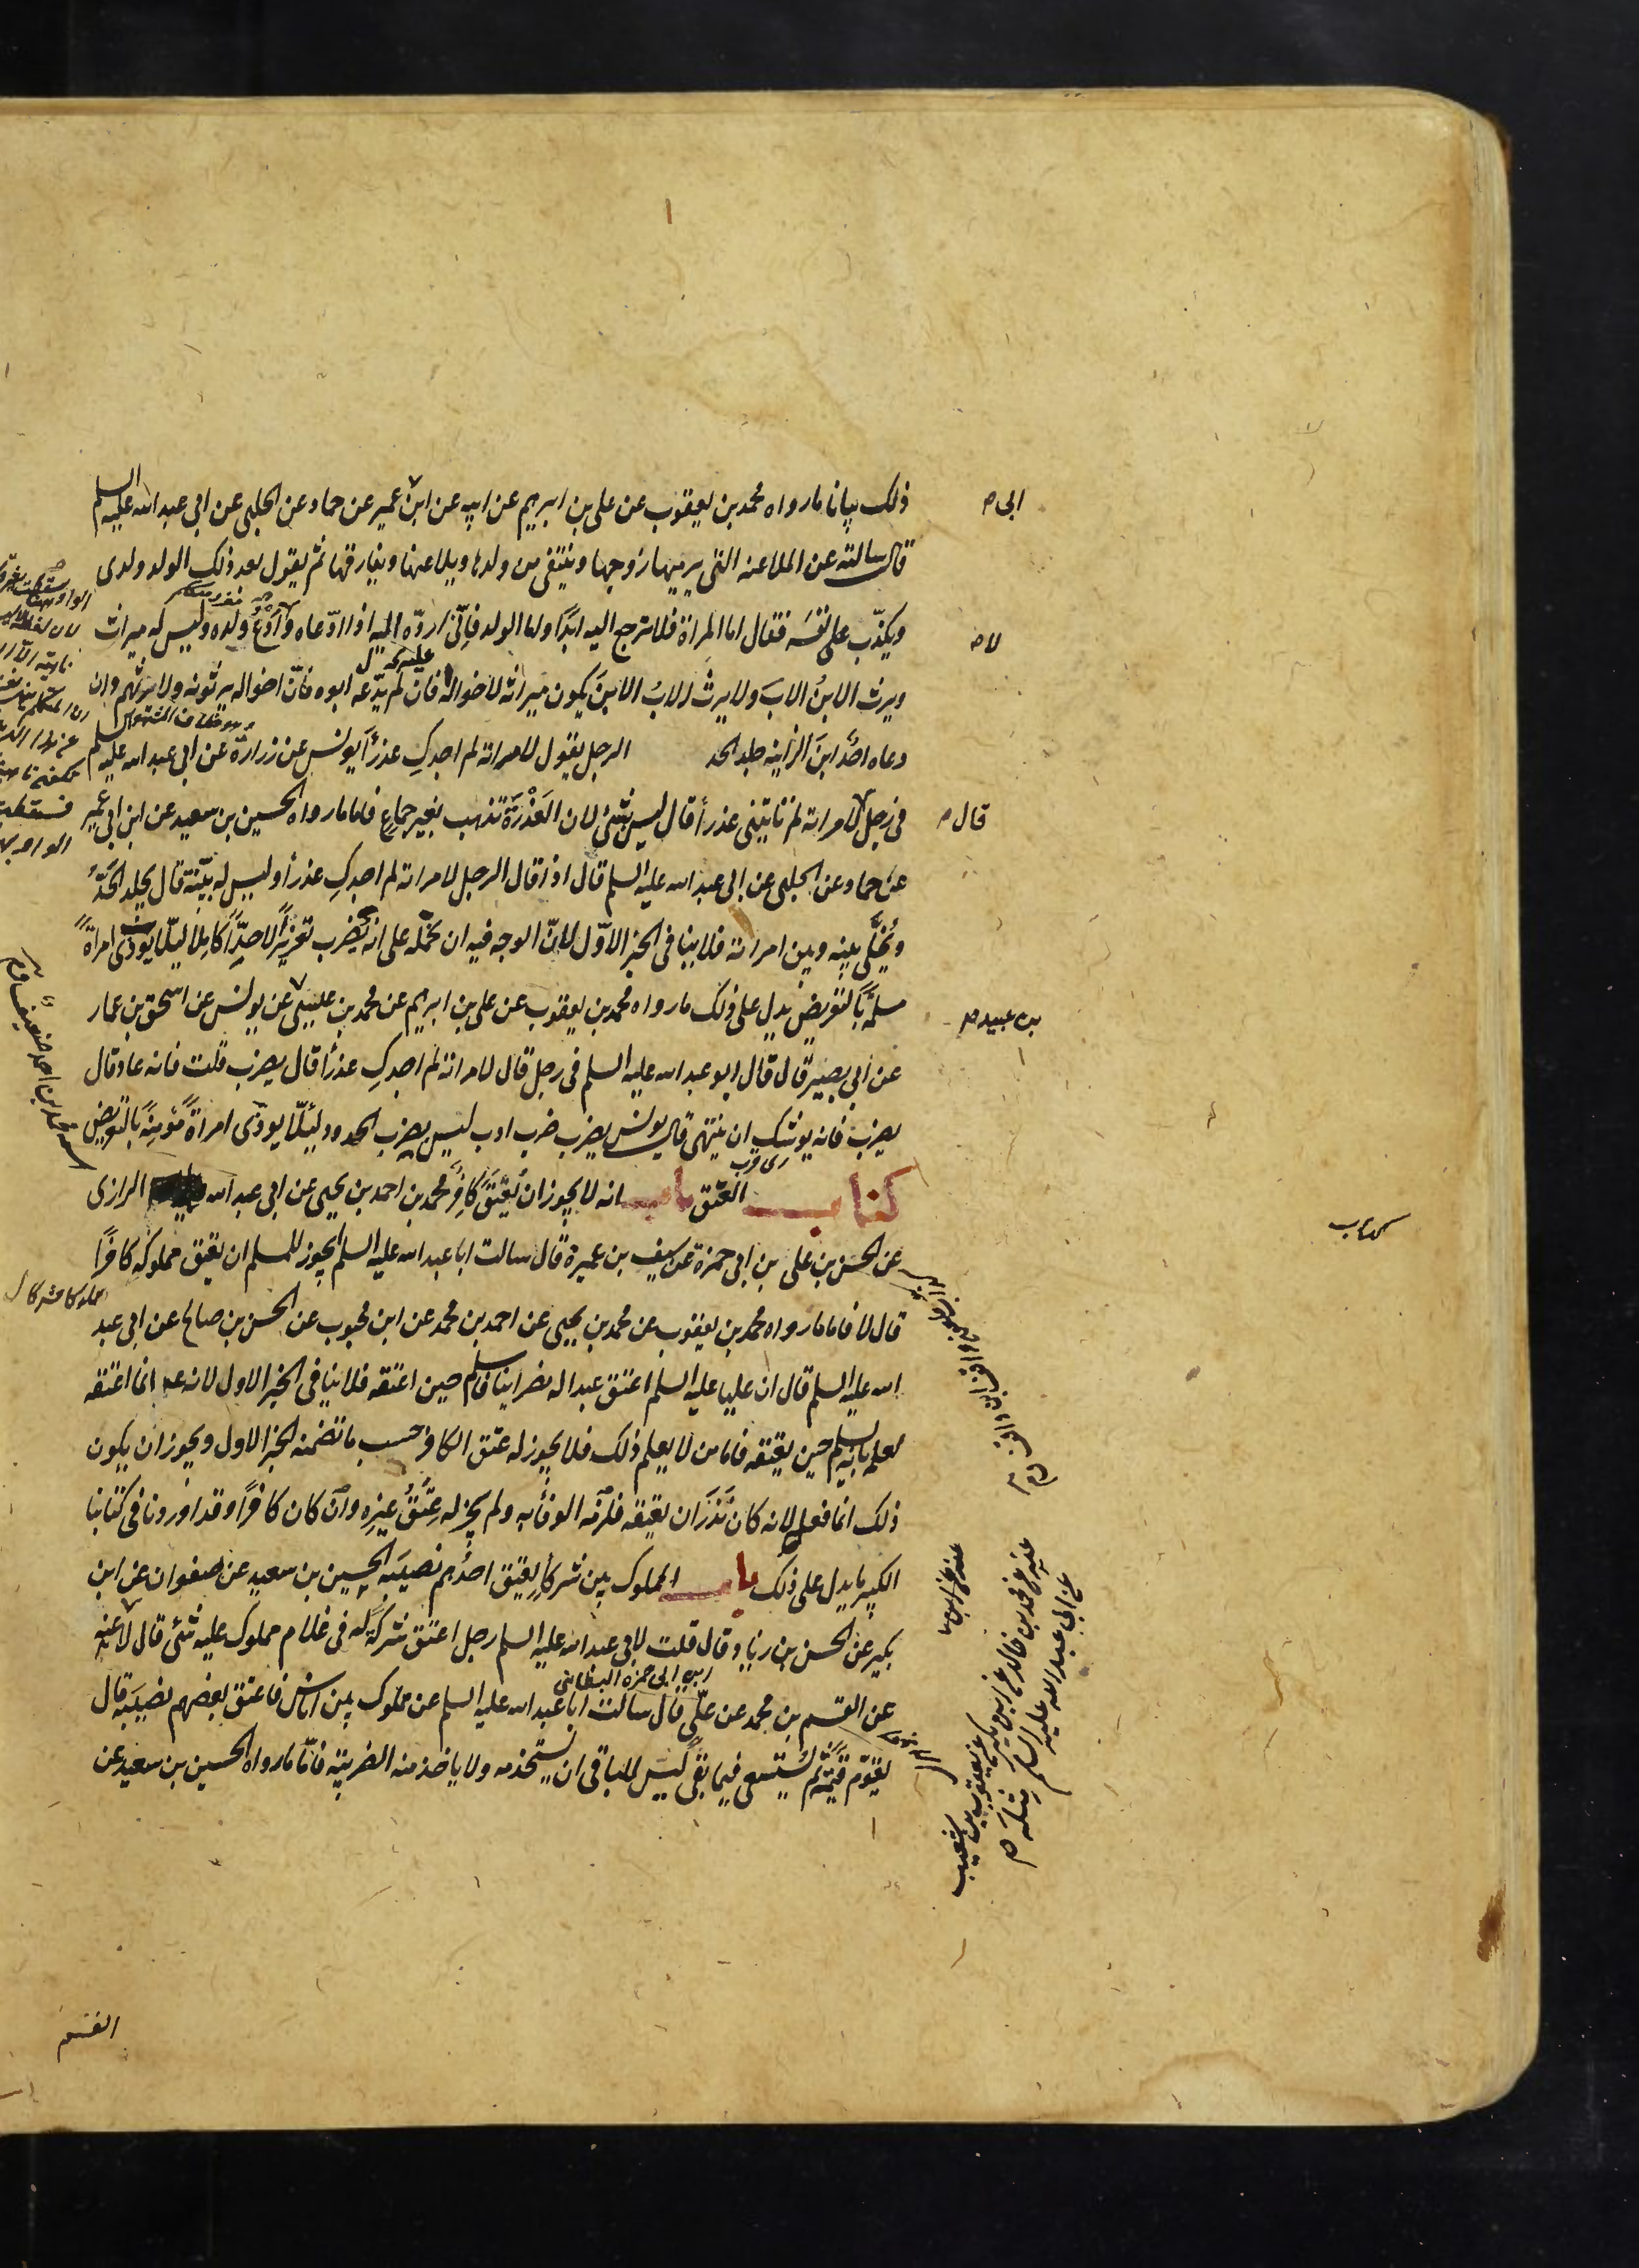 ذلك بيانا ما رواه محمد بن يعقوب عن علي بن ابرهيم عن ابيه عن ابن عمير عن حماد عن الحلبي عن ابي عبد الله عليه السلم
ابي
قال سالته عن الملاعنه التي يرميها زوجها وينتفي من ولدها ويلاعنها ويفارقها ثم يقول بعد ذلك الولد ولدي
ويكذّب على نفسَه فقال اما المراة فلا ترجع اليه ابدًا واما الولد فانّى اردّه اليه اذا ادّعاه ولا اَدَعُ ولده وليس له ميراث
ويرث الابنُ الابَ ولا يرثُ الابُ الابنَ يكون ميراثه لاخواله فان لم يدّعه ابوه فانّ اخواله يرثونه ولا يرثهم وان
دعاه احدٌ ابنَ الزانيه جلد الحد الرجل يقول لامراته لم اجدكِ عذرأَ يونس عن زرارة عن ابي عبد الله عليه السلم
في رجل لامراته لم تاتيني عذرأ قال ليس بشئ لان العُذْرَة تذهب بغير جماع فاما ما رواه الحسين بن سعيد عن ابن ابي عمير
قال
عن حماد عن الحلبي عن ابي عبد الله عليه السلم قال اذا قال الرجل لامراته لم اجدكِ عذرأ وليس له بيّنة قال يجلد الحَدَّ
ويُخلَّى بينه وبين امراته فلا ينافي الخبر الاوّل لانّ الوجه فيه ان نحمله على انه يُضرب تعزيرًا لا حدًّا كاملا ليلّا يوذى امراةً
مسلمةً بالتعريض يدل على ذلك ما رواه محمد بن يعقوب عن علي بن ابرهيم عن محمد بن عيسى عن يونس عن اسحق بن عمار
بن عبيد
عن ابي بصير قال قال ابو عبد الله عليه السلم في رجل قال لامراته لم اجدكِ عذرأ قال يضرب قلت فانه عاد قال
يضرب فانه يوشك ان ينتهي قال يونس يضرب ضرب ادب ليس يضرب الحدود ليئلّا يوذى امراةً مؤمنةً بالتعريض
كتاب العتق باب انه لا يجوز ان يُعتَقَ كافِرٌ محمد بن احمد بن يحيى عن ابي عبد الله الرازي
كتاب
عن الحسن بن علي بن ابي حمزة عن سيف بن عميرة قال سالت ابا عبد الله عليه السلم ايجوز للمسلم ان يعتق مملوكه كافرًا
مملوكا مشركا
قال لا فاما ما رواه محمد بن يعقوب عن محمد بن يحيى عن احمد بن محمد عن ابن محبوب عن الحسن بن صالح عن ابي عبد
الله عليه السلم قال ان عليا عليه السلم اعتق عبدا له نصرانيا فاسلم حين اعتقه فلا ينافي الخبر الاول لانه انما اعتقه
لعلمه بانه يسلم حين يعتقه فاما من لا يعلم ذلك فلا يجوز له عتق الكافر حسب ما تضمنه الخبر الاول ويجوز ان يكون
ذلك انما فعل لانه كان نَذَرَ ان يعتقه فلزمه الوفأ به ولم يجز له عِتْقُ غيرِه وان كان كافرًا وقد اوردنا في كتابنا
الكبير ما يدل على ذلك باب المملوك بين شركأ يعتق احدُهم نصيبَه الحسين بن سعيد عن صفوان عن ابن
بكير عن الحسن بن زياد قال قلت لابي عبد الله عليه السلم رجل اعتق شركة له في غلام مملوك عليه شئ قال لا عنه
بن ابي حمزه البطائني
عن القسم بن محمد عن علي قال سالت ابا عبد الله عليه السلم عن مملوك بين اناس فاعتق بعضهم نصيبَه قال
يقوّم قيمةً ثم يُستسعى فيما بقى ليس للباقي ان يستخدمه ولا ياخذ منه الضريبة فامّا ما رواه الحسين بن سعيد عن
عنه عن محمد بن خالد عن ابن بكير عن يعقوب بن شعيب
عن ابي عبد الله عليه السلم مثله
القسم